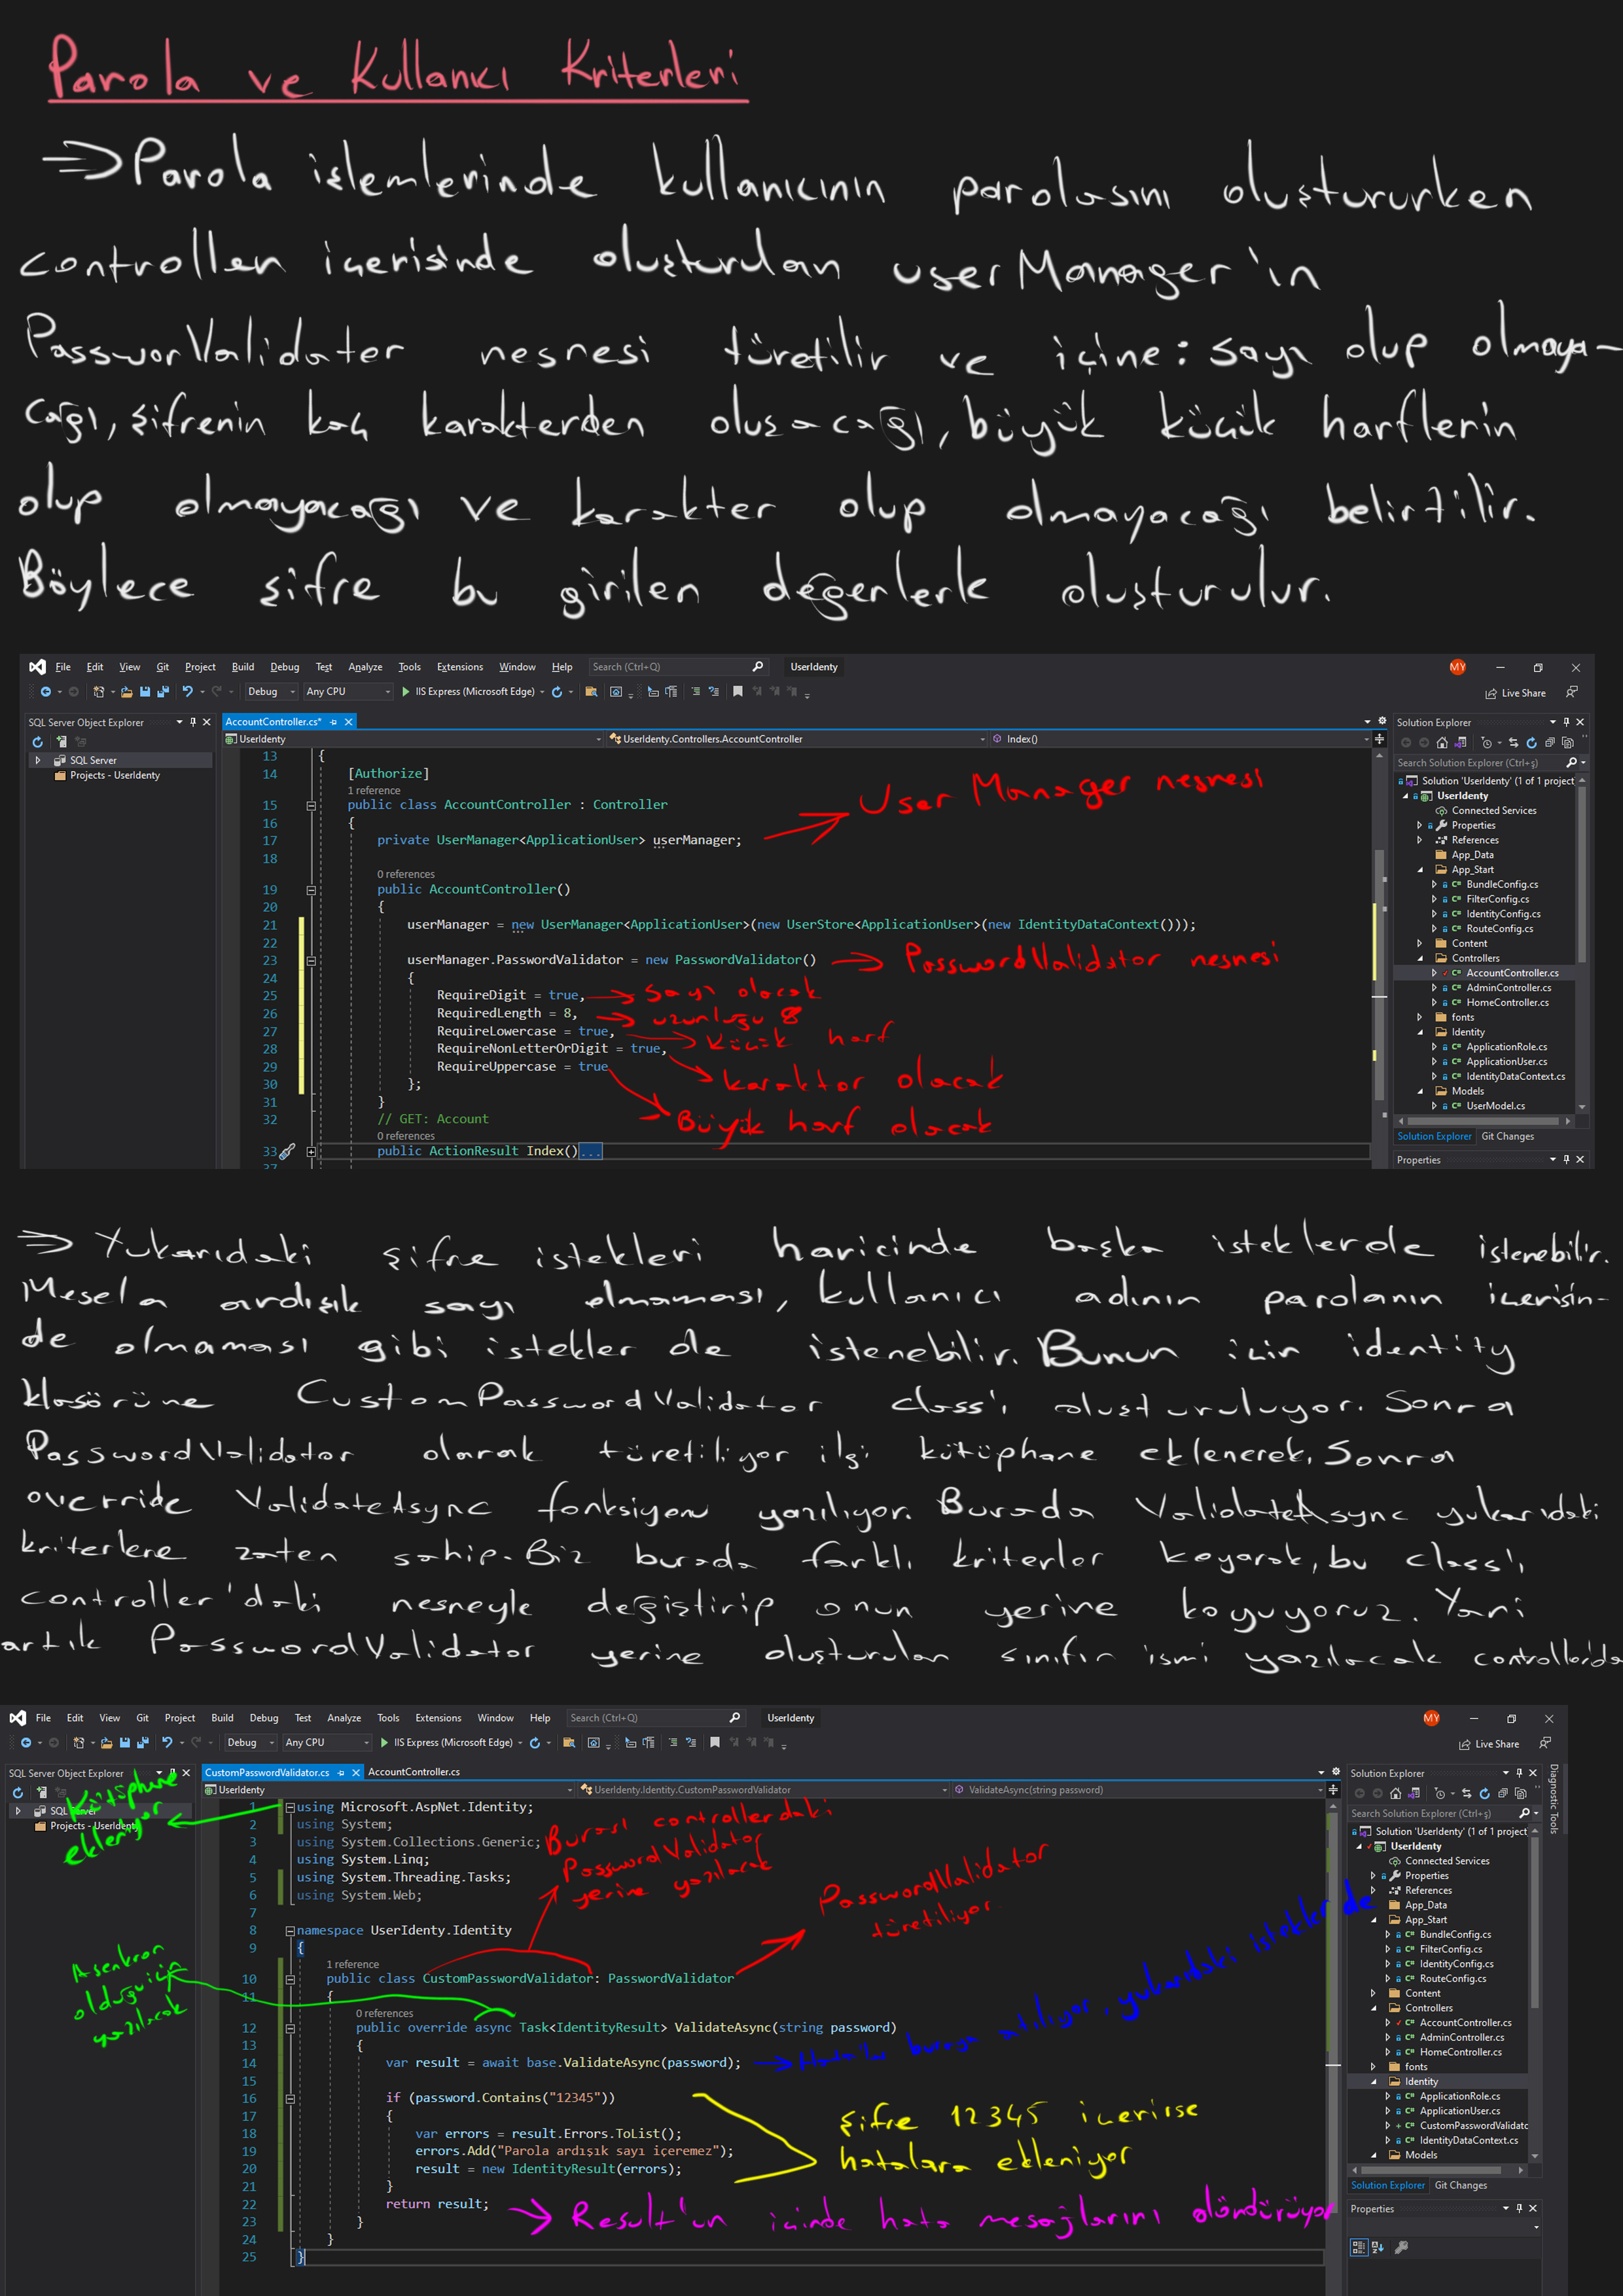 Parola ve Kullanıcı Kriterleri
⇒ Parola işlemlerinde kullanıcının parolasını oluştururken
controller içerisinde oluşturulan userManager'ın
PassworValidater nesnesi türetilir ve içine: sayı olup olmaya-
cağı, şifrenin kaç karakterden oluşacağı, büyük küçük harflerin
olup olmayacağı ve karakter olup olmayacağı belirtilir.
Böylece şifre bu girilen değerlerle oluşturulur.
File Edit View Git Project Build Debug Test Analyze Tools Extensions Window Help Search (Ctrl+Q) UserIdenty MY
Debug Any CPU IIS Express (Microsoft Edge) Live Share
SQL Server Object Explorer
SQL Server
Projects - UserIdenty
AccountController.cs*
UserIdenty UserIdenty.Controllers.AccountController Index()
13 {
14 [Authorize]
1 reference
15 public class AccountController : Controller
16 {
17 private UserManager<ApplicationUser> userManager; → User Manager nesnesi
18
0 references
19 public AccountController()
20 {
21 userManager = new UserManager<ApplicationUser>(new UserStore<ApplicationUser>(new IdentityDataContext()));
22
23 userManager.PasswordValidator = new PasswordValidator() → PasswordValidator nesnesi
24 {
25 RequireDigit = true, → sayı olacak
26 RequiredLength = 8, → uzunluğu 8
27 RequireLowercase = true, → küçük harf
28 RequireNonLetterOrDigit = true, → karaktor olacak
29 RequireUppercase = true → Büyük harf olacak
30 };
31 }
32 // GET: Account
0 references
33 public ActionResult Index()...
37
Solution Explorer
Search Solution Explorer (Ctrl+ş)
Solution 'UserIdenty' (1 of 1 project
UserIdenty
Connected Services
Properties
References
App_Data
App_Start
BundleConfig.cs
FilterConfig.cs
IdentityConfig.cs
RouteConfig.cs
Content
Controllers
AccountController.cs
AdminController.cs
HomeController.cs
fonts
Identity
ApplicationRole.cs
ApplicationUser.cs
IdentityDataContext.cs
Models
UserModel.cs
Solution Explorer Git Changes
Properties
⇒ Yukarıdaki şifre istekleri haricinde başka isteklerde istenebilir.
Mesela ardışık sayı olmaması, kullanıcı adının parolanın içerisin-
de olmaması gibi istekler de istenebilir. Bunun için identity
klasörüne CustomPasswordValidator class'ı oluşturuluyor. Sonra
PasswordValidator olarak türetiliyor ilgi kütüphane eklenerek. Sonra
override ValidateAsync fonksiyonu yazılıyor. Burada ValidateAsync yukarıdaki
kriterlere zaten sahip. Biz burada farklı kriterler koyarak, bu class'ı
controller'daki nesneyle değiştirip onun yerine koyuyoruz. Yani
artık PasswordValidator yerine oluşturulan sınıfın ismi yazılacak controller'da
File Edit View Git Project Build Debug Test Analyze Tools Extensions Window Help Search (Ctrl+Q) UserIdenty MY
Debug Any CPU IIS Express (Microsoft Edge) Live Share
SQL Server Object Explorer
SQL Server
Projects - UserIdenty
Kütüphane
ekleniyor
CustomPasswordValidator.cs AccountController.cs
UserIdenty UserIdenty.Identity.CustomPasswordValidator ValidateAsync(string password)
1 using Microsoft.AspNet.Identity;
2 using System;
3 using System.Collections.Generic;
4 using System.Linq;
5 using System.Threading.Tasks;
6 using System.Web;
7
Burası controllerdaki
PasswordValidator
yerine yazılacak
PasswordValidator
türetiliyor
8 namespace UserIdenty.Identity
9 {
1 reference
10 public class CustomPasswordValidator: PasswordValidator
11 {
0 references
12 public override async Task<IdentityResult> ValidateAsync(string password)
Asenkron
olduğu için
yazılacak
13 {
14 var result = await base.ValidateAsync(password); → Hatalar buraya atılıyor, yukarıdaki istekler de
15
16 if (password.Contains("12345"))
17 {
18 var errors = result.Errors.ToList();
19 errors.Add("Parola ardışık sayı içeremez");
20 result = new IdentityResult(errors);
21 }
şifre 12345 içerirse
hatalara ekleniyor
22 return result; → Result'un içinde hata mesajlarını döndürüyor
23 }
24 }
25 }
Solution Explorer
Search Solution Explorer (Ctrl+ş)
Solution 'UserIdenty' (1 of 1 project
UserIdenty
Connected Services
Properties
References
App_Data
App_Start
BundleConfig.cs
FilterConfig.cs
IdentityConfig.cs
RouteConfig.cs
Content
Controllers
AccountController.cs
AdminController.cs
HomeController.cs
fonts
Identity
ApplicationRole.cs
ApplicationUser.cs
CustomPasswordValidatc
IdentityDataContext.cs
Models
Solution Explorer Git Changes
Properties
Diagnostic Tools